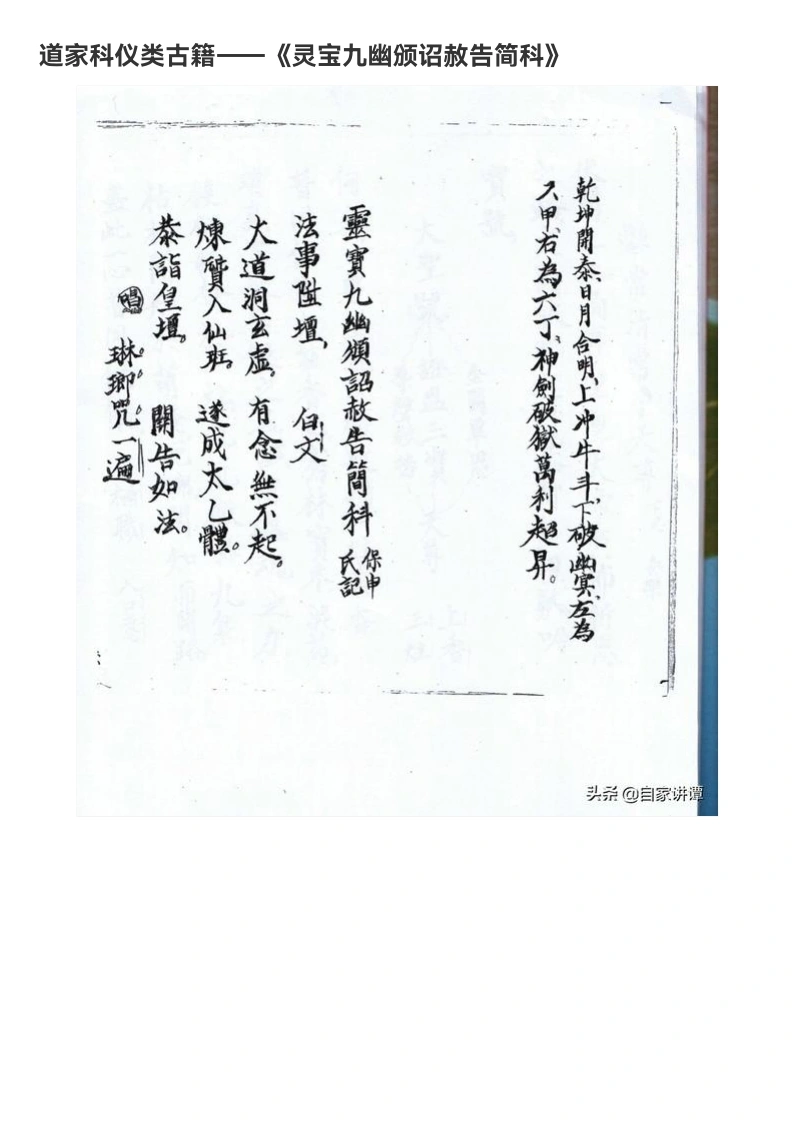 道家科仪类古籍——《灵宝九幽颁诏赦告简科》
乾坤開泰、日月合明、上冲牛斗、下破幽冥、左為
六甲、右為六丁、神劍破獄萬利超昇。
靈寶九幽頒詔赦告簡科 保申氏記
法事陞壇、 白文
大道洞玄虛。有念無不起。
煉質入仙班。遂成太乙體。
恭詣皇壇。 開告如法。
唱 琳。瑯。咒。一遍
头条 @自家讲谭